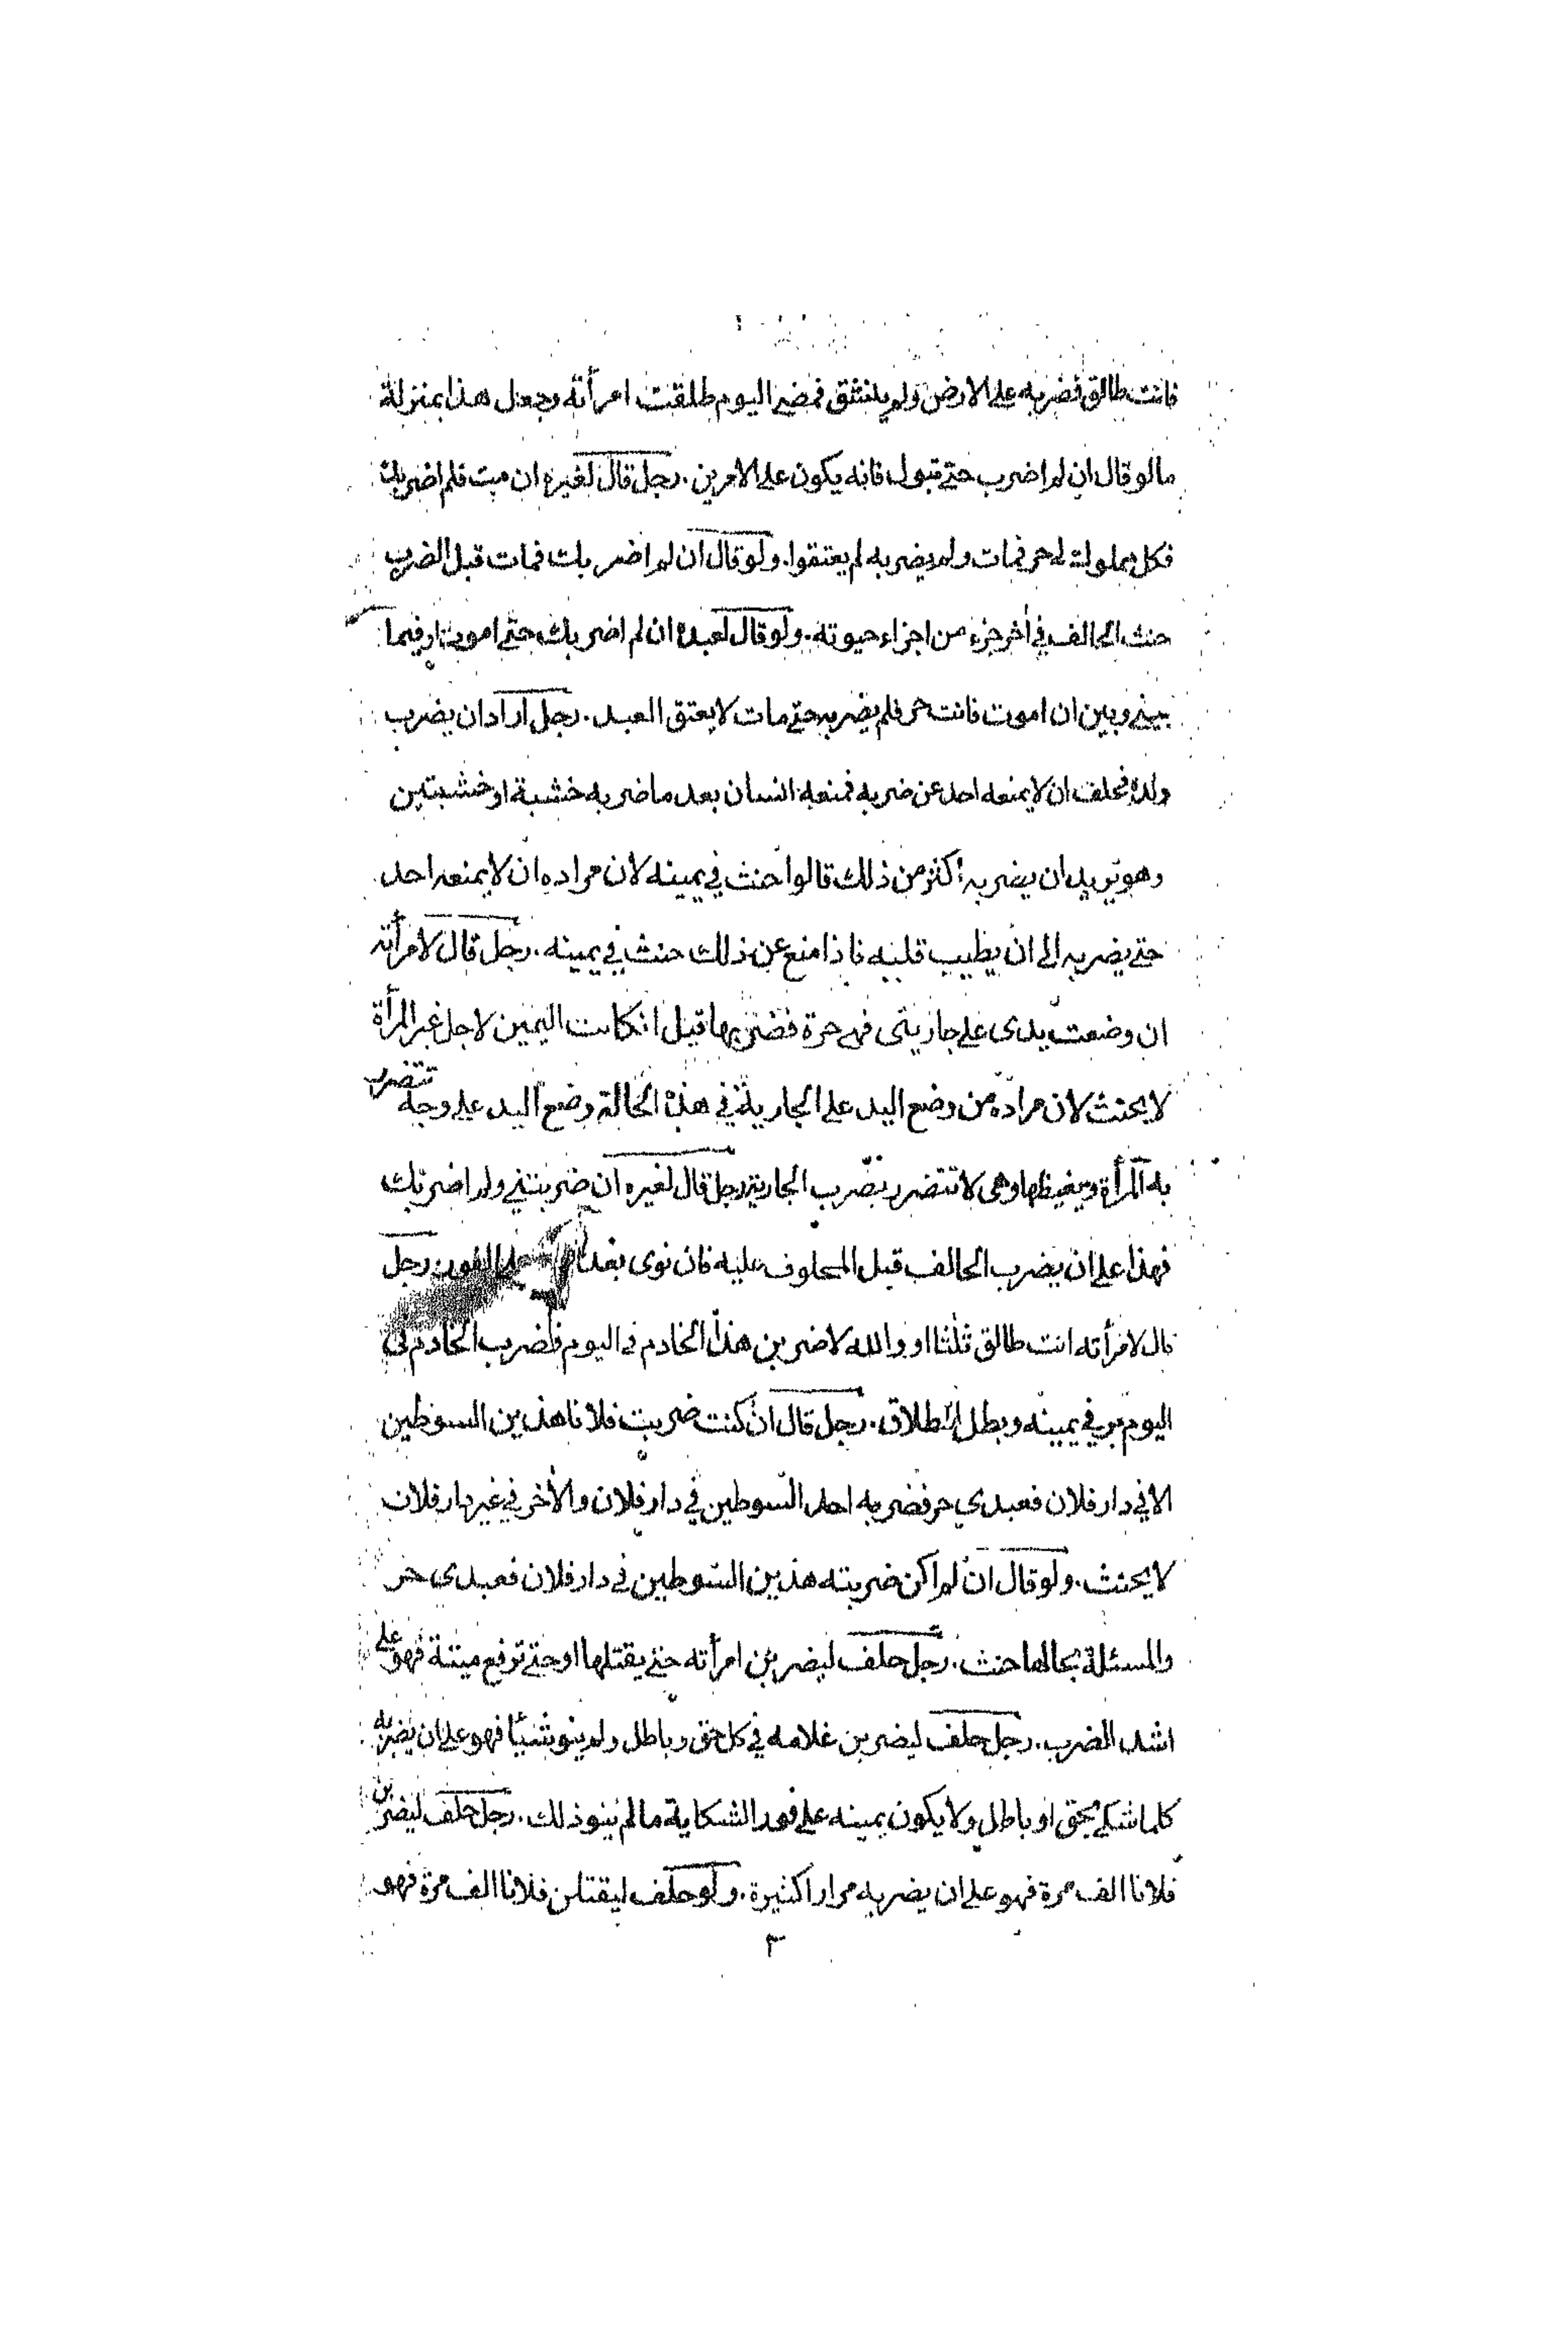 فانت طالق فضربه على الارض ولم ينشق فمضى اليوم طلقت امرأته وجعل هذا بمنزلة
مالو قال ان لم اضرب حتى تبول فانه يكون على الامرين . رجل قال لغيره ان مت فلم اضربك
فكل مملوك له حر فمات ولم يضربه لم يعتقوا . ولو قال ان لم اضربك فمات قبل الضرب
حنث الحالف في أخر جزء من اجزاء حيوته . ولو قال لعبده ان لم اضربك حتى اموت او فيما
بيني وبين ان اموت فانت حر فلم يضربه حتى مات لا يعتق العبد . رجل اراد ان يضرب
ولده فحلف ان لا يمنعه احد عن ضربه فمنعه انسان بعد ما ضربه خشبة او خشبتين
وهو يريد ان يضربه أكثر من ذلك قالوا حنث في يمينه لان مراده ان لا يمنعه احد
حتى يضربه الى ان يطيب قلبه فاذا منع عن ذلك حنث في يمينه . رجل قال لامرأته
ان وضعت يدى على جاريتى فهى حرة فضربها قيل ان كانت اليمين لاجل غير المرأة
لا يحنث لان مراده من وضع اليد على الجارية في هذه الحالة وضع اليد على وجه تتضرر
به المرأة ويغيظها وهى لا تتضرر بضرب الجارية رجل قال لغيره ان ضربتني ولم اضربك
فهذا على ان يضرب الحالف قبل المحلوف عليه فان نوى بعد على الفور . رجل
قال لامرأته انت طالق ثلثا او والله لاضربن هذا الخادم في اليوم فضرب الخادم في
اليوم بر في يمينه وبطل الطلاق . رجل قال ان كنت ضربت فلانا هذين السوطين
الا في دار فلان فعبدي حر فضربه احد السوطين في دار فلان والأخر في غير دار فلان
لا يحنث . ولو قال ان لم اكن ضربته هذين السوطين في دار فلان فعبدى حر
والمسئلة بحالها حنث . رجل حلف ليضربن امرأته حتى يقتلها او حتى ترفع ميتة فهو على
اشد الضرب . رجل حلف ليضربن غلامه في كل حق وباطل ولم ينو شيئا فهو على ان يضربه
كلما شكى بحق او باطل ولا يكون يمينه على فور الشكاية ما لم ينو ذلك . رجل حلف ليضربن
فلانا الف مرة فهو على ان يضربه مرارا كثيرة . ولو حلف ليقتلن فلانا الف مرة فهو
٣